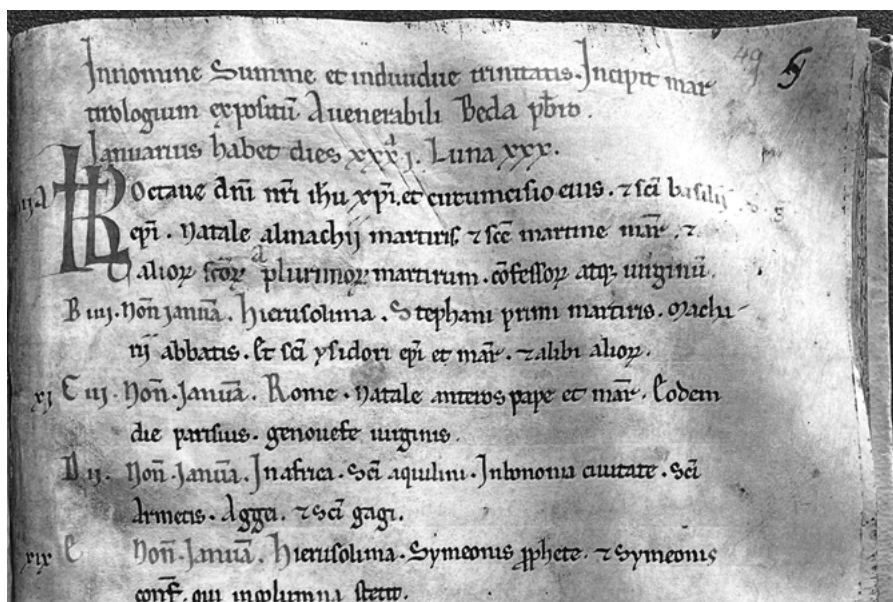 49
Innomine Summe et indiuidue trinitatis. Incipit mar
tirologium expositū Auenerabili Beda pb̄ro.
Januarius habet dies xxxj. Luna xxx.
Octaue dn̄i nr̄i ih̄u xp̄i. et circumcisio eius. ⁊ sc̄i basilij
ep̄i. Natale almachij martiris. ⁊ sc̄e martine mar̄. ⁊
alioꝝ sc̄oꝝ plurimoꝝ martirum. cōfessoꝝ atq; uirginū.
B iiij. Non̄ januā. Hierusolima. Stephani primi martiris. Macha-
rij abbatis. Et sc̄i ysidori ep̄i et mar̄. ⁊ alibi alioꝝ.
xj C iij. Non̄. Januā. Rome. Natale anteros pape et mar̄. Eodem
die parisius. genouefe uirginis.
D ij. Non̄. Januā. Inafrica. Sc̄i aquilini. Inbononia ciuitate. Sc̄i
Armetis. Aggei. ⁊ Sc̄i gagi.
xix E Non̄. Januā. Hierusolima. Symeonis ꝓphete. ⁊ Symeonis
conf̄. qui incolumna stetit.